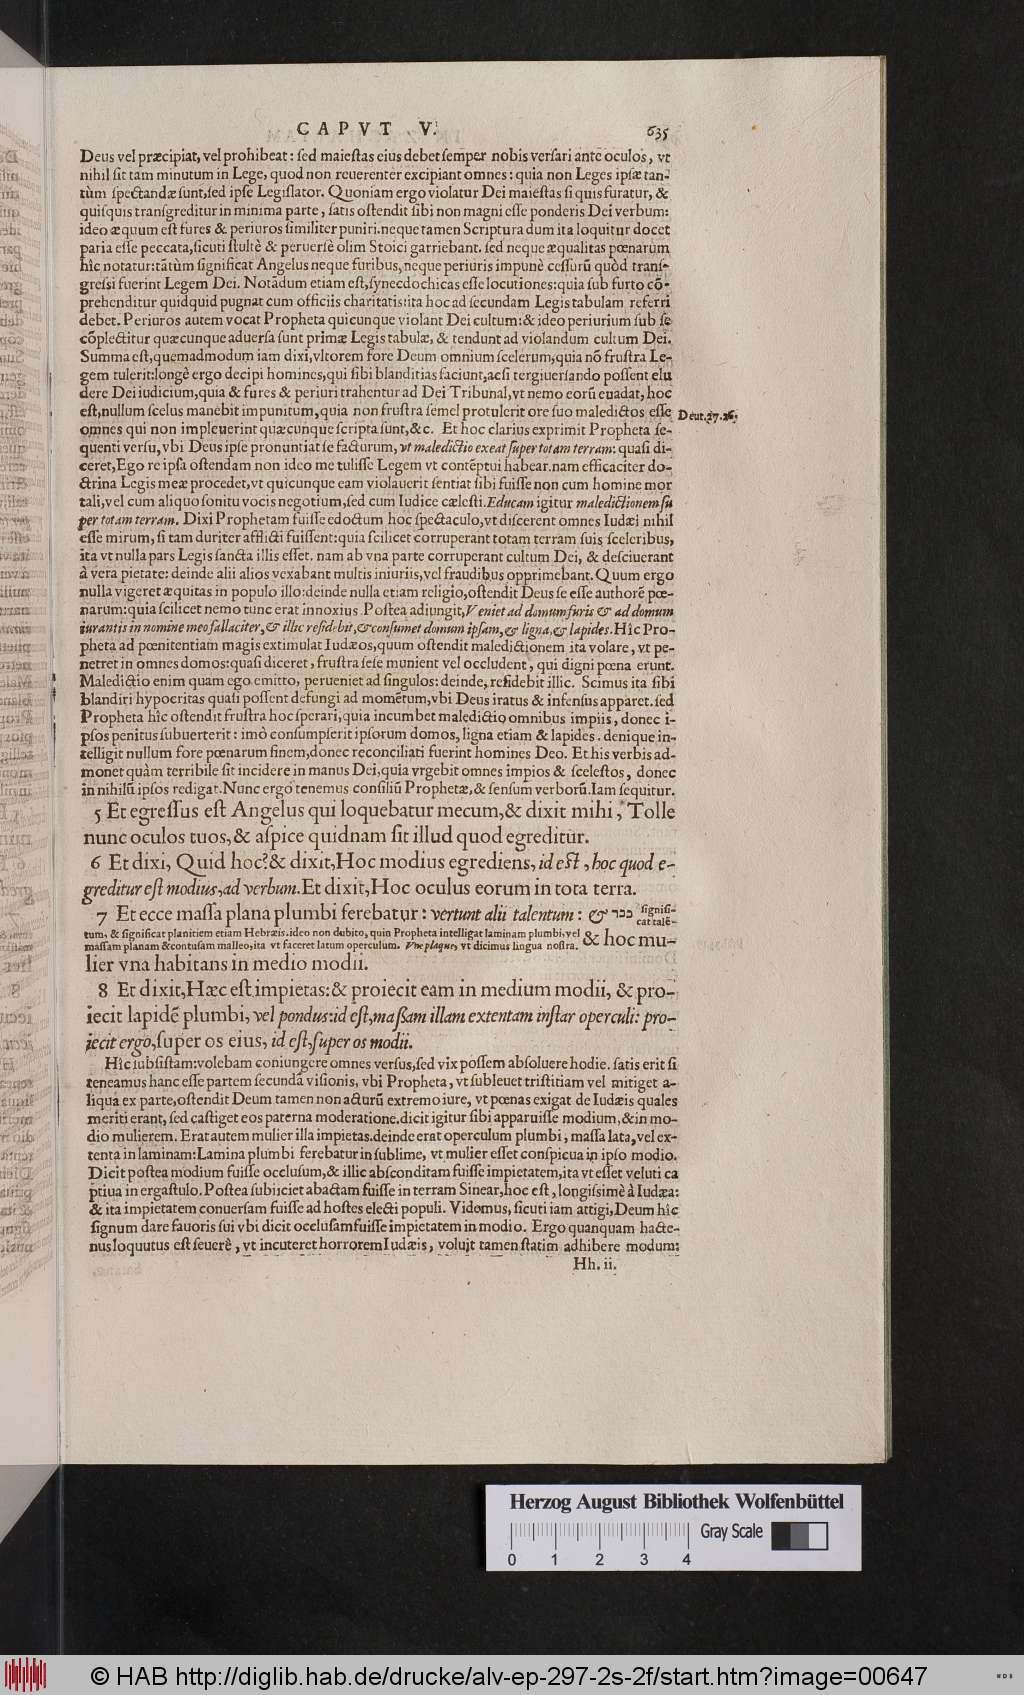 CAPVT V.
635
Deus vel præcipiat, vel prohibeat: sed maiestas eius debet semper nobis versari ante oculos, vt
nihil sit tam minutum in Lege, quod non reuerenter excipiant omnes: quia non Leges ipsæ tan-
tùm spectandæ sunt, sed ipse Legislator. Quoniam ergo violatur Dei maiestas si quis furatur, &
quisquis transgreditur in minima parte, satis ostendit sibi non magni esse ponderis Dei verbum:
ideo æquum est fures & periuros similiter puniri. neque tamen Scriptura dum ita loquitur docet
paria esse peccata, sicuti stultè & peruersè olim Stoici garriebant. sed neque æqualitas pœnarum
hîc notatur: tãtùm significat Angelus neque furibus, neque periuris impunè cessurũ quòd trans-
gressi fuerint Legem Dei. Notãdum etiam est, synecdochicas esse locutiones: quia sub furto cõ-
prehenditur quidquid pugnat cum officiis charitatis: ita hoc ad secundam Legis tabulam referri
debet. Periuros autem vocat Propheta quicunque violant Dei cultum: & ideo periurium sub se
cõplectitur quæcunque aduersa sunt primæ Legis tabulæ, & tendunt ad violandum cultum Dei.
Summa est, quemadmodum iam dixi, vltorem fore Deum omnium scelerum, quia nõ frustra Le-
gem tulerit: longè ergo decipi homines, qui sibi blanditias faciunt, acsi tergiuersando possent elu
dere Dei iudicium, quia & fures & periuri trahentur ad Dei Tribunal, vt nemo eorũ euadat, hoc
est, nullum scelus manebit impunitum, quia non frustra semel protulerit ore suo maledictos esse
Deut. 27. 26.
omnes qui non impleuerint quæcunque scripta sunt, &c. Et hoc clarius exprimit Propheta se-
quenti versu, vbi Deus ipse pronuntiat se facturum, vt maledictio exeat super totam terram: quasi di-
ceret, Ego re ipsa ostendam non ideo me tulisse Legem vt contẽptui habear. nam efficaciter do-
ctrina Legis meæ procedet, vt quicunque eam violauerit sentiat sibi fuisse non cum homine mor
tali, vel cum aliquo sonitu vocis negotium, sed cum Iudice cælesti. Educam igitur maledictionem su
per totam terram. Dixi Prophetam fuisse edoctum hoc spectaculo, vt discerent omnes Iudæi nihil
esse mirum, si tam duriter afflicti fuissent: quia scilicet corruperant totam terram suis sceleribus,
ita vt nulla pars Legis sancta illis esset. nam ab vna parte corruperant cultum Dei, & desciuerant
à vera pietate: deinde alii alios vexabant multis iniuriis, vel fraudibus opprimebant. Quum ergo
nulla vigeret æquitas in populo illo: deinde nulla etiam religio, ostendit Deus se esse authorẽ pœ-
narum: quia scilicet nemo tunc erat innoxius. Postea adiungit, Veniet ad domum furis & ad domum
iurantis in nomine meo fallaciter, & illic residebit, & consumet domum ipsam, & ligna, & lapides. Hîc Pro-
pheta ad pœnitentiam magis extimulat Iudæos, quum ostendit maledictionem ita volare, vt pe-
netret in omnes domos: quasi diceret, frustra sese munient vel occludent, qui digni pœna erunt.
Maledictio enim quam ego emitto, perueniet ad singulos: deinde, residebit illic. Scimus ita sibi
blandiri hypocritas quasi possent defungi ad momẽtum, vbi Deus iratus & infensus apparet. sed
Propheta hîc ostendit frustra hoc sperari, quia incumbet maledictio omnibus impiis, donec i-
psos penitus subuerterit: imò consumpserit ipsorum domos, ligna etiam & lapides. denique in-
telligit nullum fore pœnarum finem, donec reconciliati fuerint homines Deo. Et his verbis ad-
monet quàm terribile sit incidere in manus Dei, quia vrgebit omnes impios & scelestos, donec
in nihilũ ipsos redigat. Nunc ergo tenemus consiliũ Prophetæ, & sensum verborũ. Iam sequitur.
5 Et egressus est Angelus qui loquebatur mecum, & dixit mihi, Tolle
nunc oculos tuos, & aspice quidnam sit illud quod egreditur.
6 Et dixi, Quid hoc? & dixit, Hoc modius egrediens, id est, hoc quod e-
greditur est modius, ad verbum. Et dixit, Hoc oculus eorum in tota terra.
7 Et ecce massa plana plumbi ferebatur: vertunt alii talentum: & ככר signifi-
cat talẽ-
tum, & significat planitiem etiam Hebræis. ideo non dubito, quin Propheta intelligat laminam plumbi, vel
massam planam & contusam malleo, ita vt faceret latum operculum. Vne plaque, vt dicimus lingua nostra. & hoc mu-
lier vna habitans in medio modii.
8 Et dixit, Hæc est impietas: & proiecit eam in medium modii, & pro-
iecit lapidẽ plumbi, vel pondus: id est, massam illam extentam instar operculi: pro-
iecit ergo, super os eius, id est, super os modii.
Hîc subsistam: volebam coniungere omnes versus, sed vix possem absoluere hodie. satis erit si
teneamus hanc esse partem secundã visionis, vbi Propheta, vt subleuet tristitiam vel mitiget a-
liqua ex parte, ostendit Deum tamen non acturũ extremo iure, vt pœnas exigat de Iudæis quales
meriti erant, sed castiget eos paterna moderatione. dicit igitur sibi apparuisse modium, & in mo-
dio mulierem. Erat autem mulier illa impietas. deinde erat operculum plumbi, massa lata, vel ex-
tenta in laminam: Lamina plumbi ferebatur in sublime, vt mulier esset conspicua in ipso modio.
Dicit postea modium fuisse occlusum, & illic absconditam fuisse impietatem, ita vt esset veluti ca
ptiua in ergastulo. Postea subiiciet abactam fuisse in terram Sinear, hoc est, longissimè à Iudæa:
& ita impietatem conuersam fuisse ad hostes electi populi. Videmus, sicuti iam attigi, Deum hîc
signum dare fauoris sui vbi dicit occlusam fuisse impietatem in modio. Ergo quanquam hacte-
nus loquutus est seuerè, vt incuteret horrorem Iudæis, voluit tamen statim adhibere modum:
Hh. ii.
Herzog August Bibliothek Wolfenbüttel
Gray Scale
0 1 2 3 4
© HAB http://diglib.hab.de/drucke/alv-ep-297-2s-2f/start.htm?image=00647